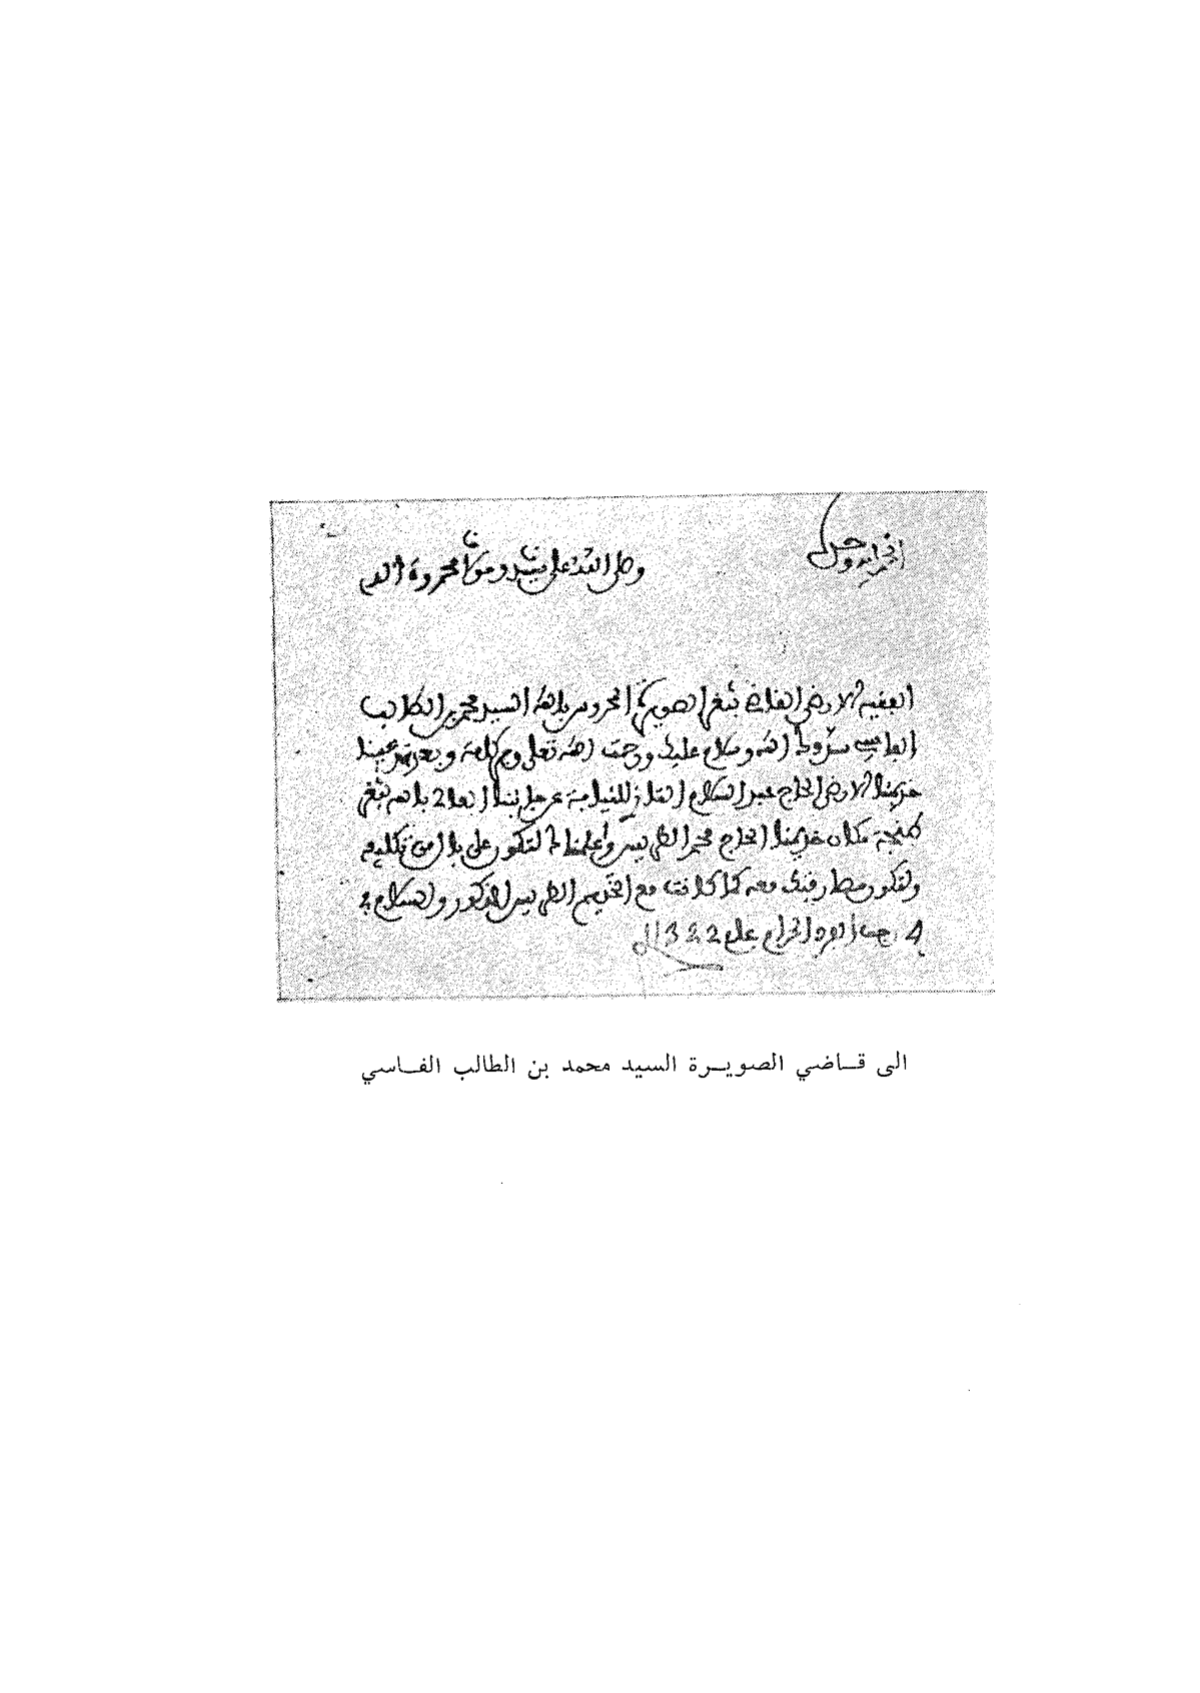 الحمد لله وحده
وصلى الله على سيدنا ومولانا محمد وءاله
الفقيه الارضى القاضي بثغر الصويرة المحروس بالله السيد محمد بن الطالب
الفاسي سددك الله وسلام عليك ورحمت الله تعلى وبركاته وبعد فقد عينا
خديمنا الارضى الحاج عبد السلام للنيابة عن جانبنا بالله بثغر
طنجة مكان خديمنا الحاج محمد الطريس وأعلمناك لتكون على بال من تكليفه
ولتكون مخاطبتك معه كما كانت مع الخديم الطريس المذكور والسلام في
4 رجب الفرد الحرام عام 1322
الى قاضي الصويرة السيد محمد بن الطالب الفاسي